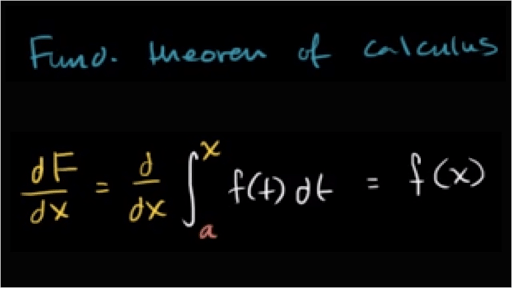 Fund. theorem of calculus
dF/dx = d/dx ∫_a^x f(t) dt = f(x)